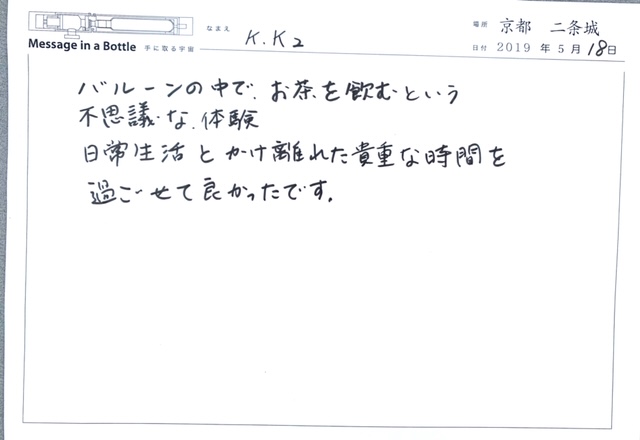 なまえ K.K2
場所 京都 二条城
Message in a Bottle 手に取る宇宙
日付 2019 年 5 月 18 日
バルーンの中で、お茶を飲むという
不思議な、体験
日常生活とかけ離れた貴重な時間を
過ごせて良かったです。